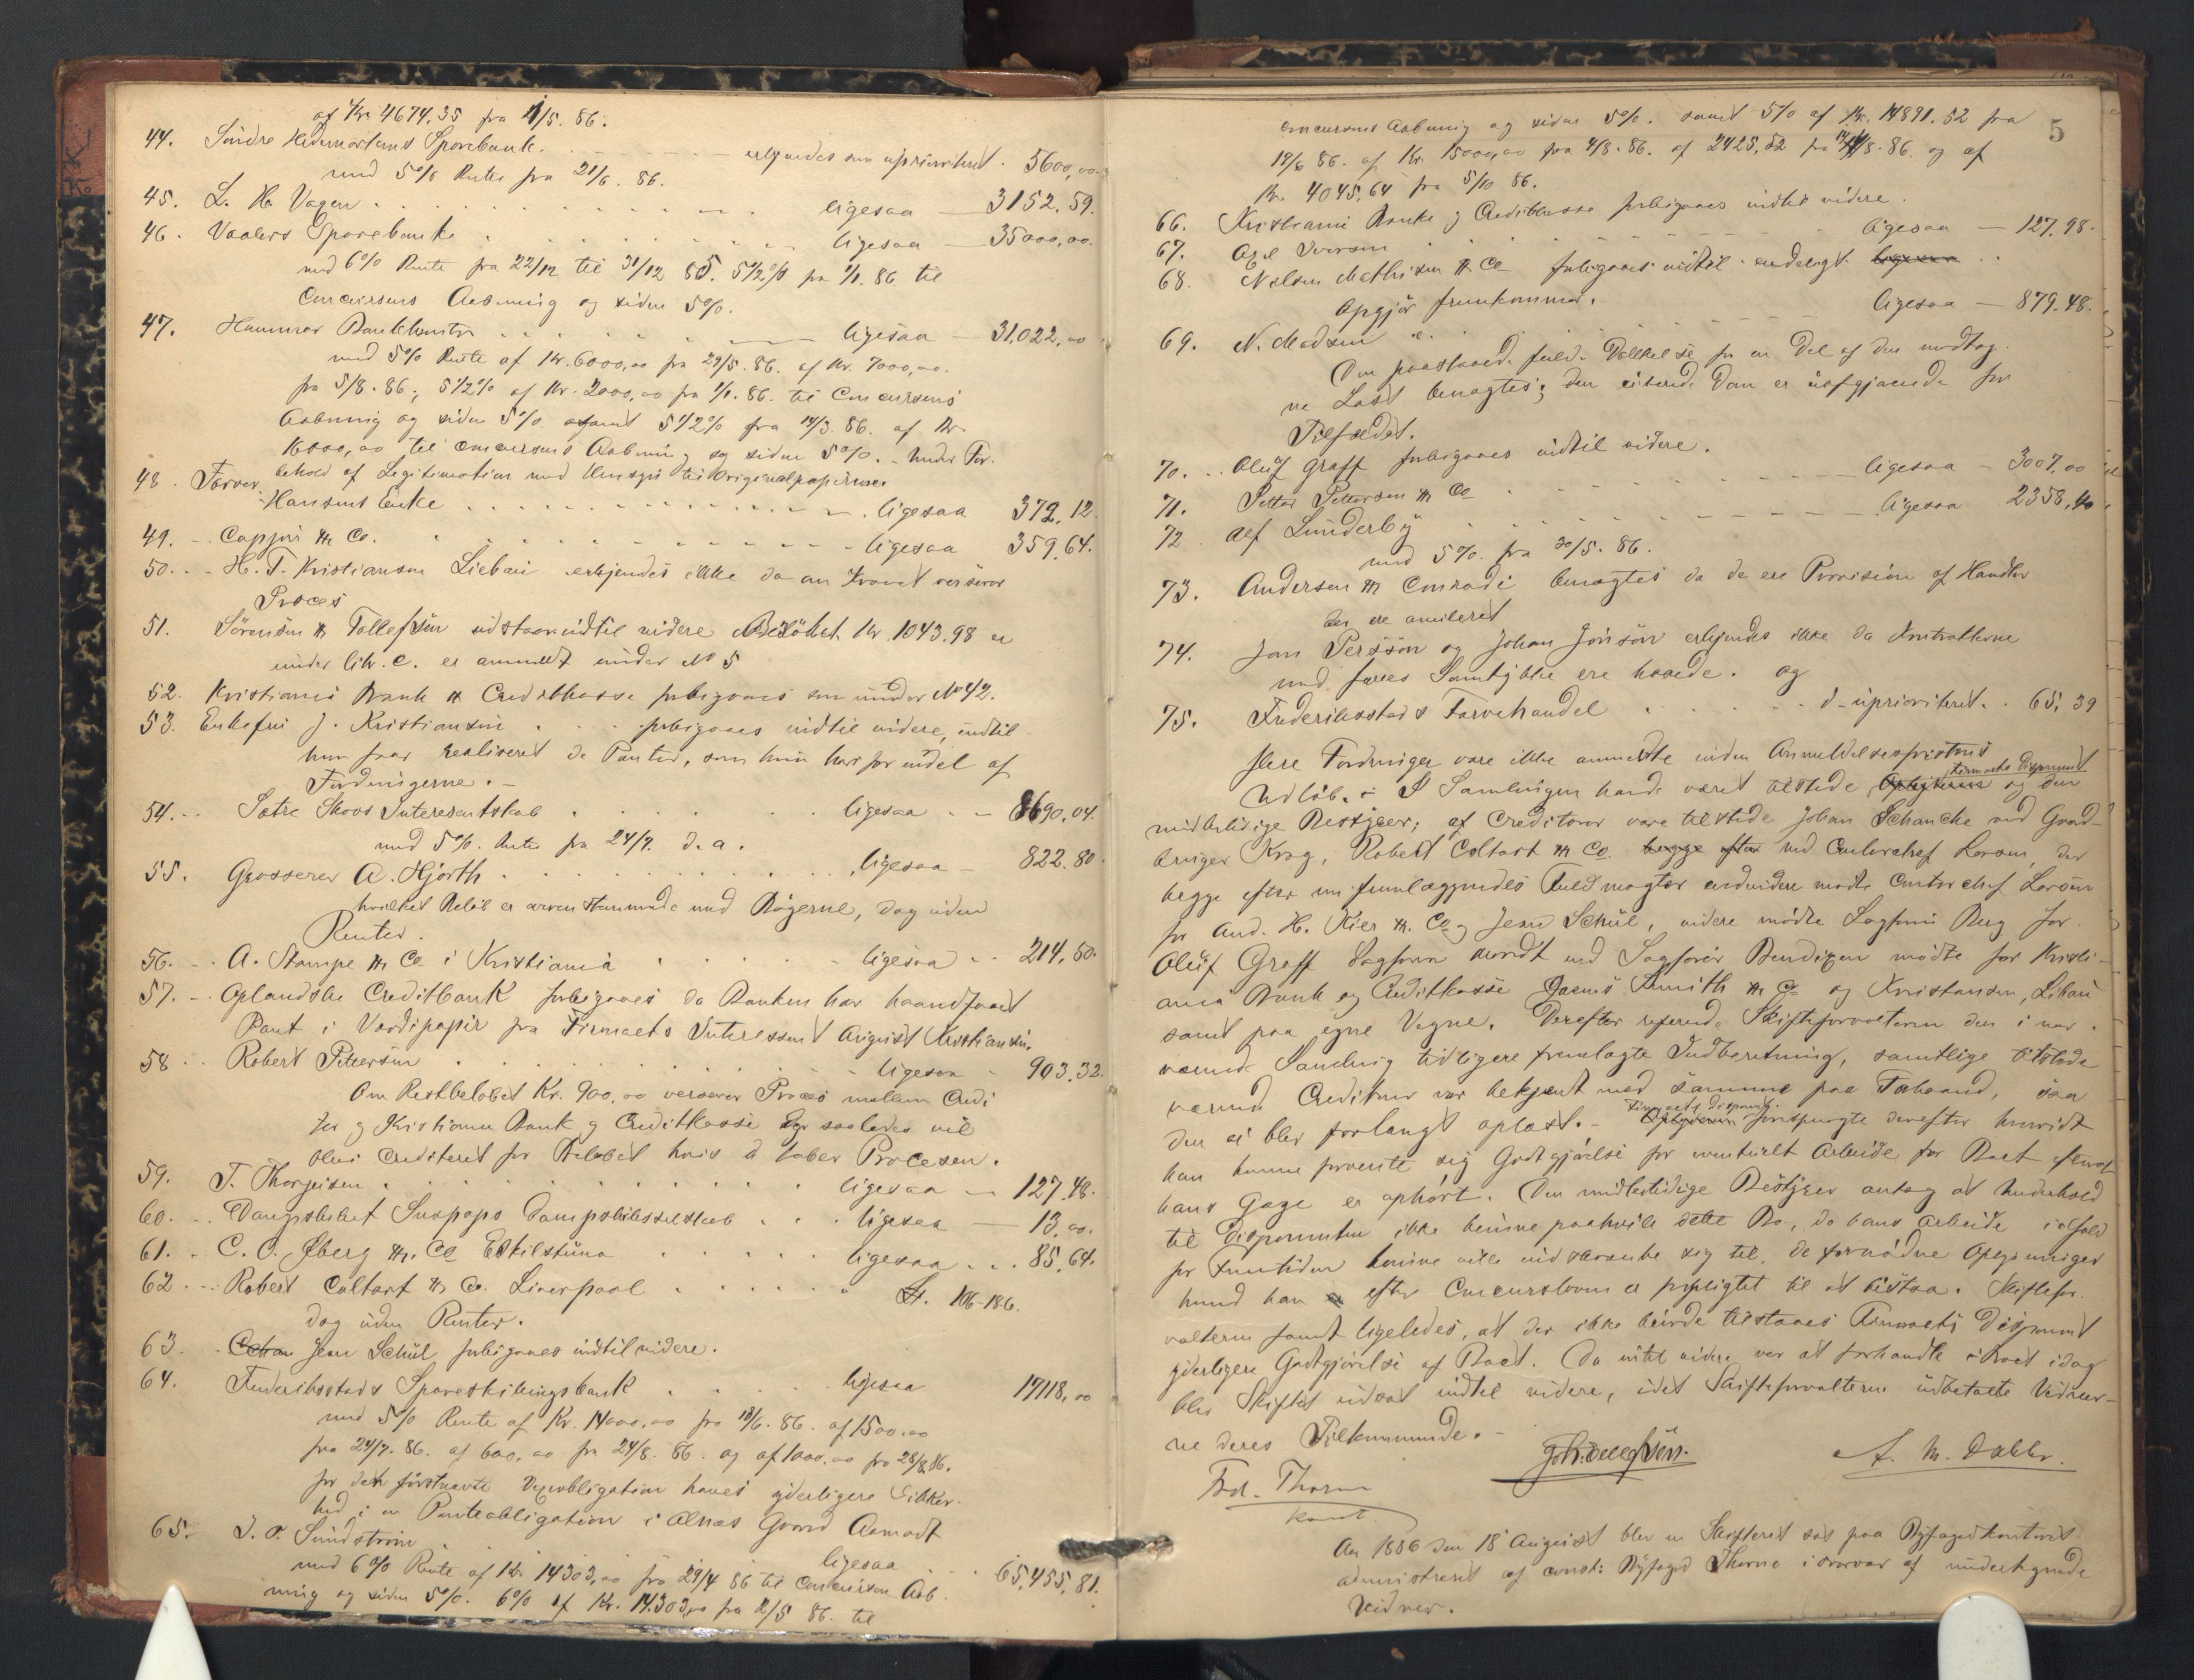 af Kr 4674.35 fra 1/5. 86.
44. Söndre Hedemarkens Sparebank. erkjendes som uprioriteret. 5600,00.
med 5% Rente fra 21/6. 86.
45. L. H. Vagen ligesaa 3152.59.
46. Vaalers Sparebank ligesaa 35000,00.
med 6% Rente fra 22/12 til 31/12 85. 5 1/2 % fra 1/1. 86 til
Concursens Aabning og siden 5%.
47. Hammer ligesaa 31,022,00
med 5% Rente af Kr. 6000,00 fra 29/5. 86. af Kr. 7000,00.
fra 5/8. 86; 5 1/2 % af Kr. 2000,00 fra 1/1. 86. til Concursens
Aabning og siden 5% samt 5 1/2 % fra 14/3. 86. af Kr.
16000,00 til Concursens Aabning og siden 5%. Under For-
behold af Legitimation med Hensyn til Originalpapirerne
48. Farver
Hansens Enke ligesaa 372,12.
49. Cappjen & Co. ligesaa 359,64.
50. H. T. Kristiansen Liebau erkjendes ikke da om Kravet verserer
Proces
51. Sörensen & Tollefsen udstaar indtil videre Beløbet Kr. 1043.98 er
under litr. C. er anmeldt under No 5
52. Kristiania Bank & Creditkasse forbigaaes som under No 42.
53. Enkefru J. Kristiansen forbigaaes indtil videre, indtil
hun faar realiseret de Panter, som hun har for endel af
Fordringerne.
54. Sætre Skovs Interesentskab ligesaa 8690,04.
med 5% Rente fra 24/7. d. a.
55. Grosserer A. Hjorth ligesaa 822.80
hvilket Beløb er overenstemmende med Bøgerne, dog uden
Renter.
56. A. Stampe & Co. i Kristiania ligesaa 214,50.
57. Oplandske Creditbank forbigaaes da Banken har haandfaaet
Pant i Værdipapir fra Firmaets Interessent August Kristiansen.
58. Robert Pettersen ligesaa 903.32.
Om Restbeløbet Kr. 900,00 verserer Proces mellem Credi
tor og Kristiania Bank og Creditkasse og saaledes vil
blive Crediteret for Beløbet hvis de taber Processen.
59. T. Thorjusen ligesaa 127.48.
60. Dampskibet Dampskibsselskab ligesaa 13,00.
61. C. O. Öberg & Co Eskilstuna ligesaa 85,64.
62. Robert Coltart & Co. Liverpool £. 106-186.
dog uden Renter.
63. Jens Schül forbigaaes indtil videre.
64. Frederiksstads Spareskillingsbank ligesaa 17118,00
med 5% Rente af Kr. 14000,00 fra 18/6. 86. af 1500,00
fra 24/7. 86. af 600,00 fra 24/8. 86. og af 1000,00 fra 28/8 86.
for den førstnævnte Vexelobligation haves yderligere Sikker-
hed i en Panteobligation i Alnæs Gaard Aamodt
65. J. P. Sundström ligesaa 65,455,81.
med 6% Rente af Kr 14303,00 fra 29/4 86 til Concursens Aab-
ning og siden 5%. 6% af Kr. 14.303,00 fra 2/5 86. til
5
Concursens Aabning og siden 5%. samt 5% af Kr. 14891.52 fra
19/6 86. af Kr. 15000,00 fra 4/8. 86. af 2425,52 fra 14/8. 86. og af
Kr. 4045,64 fra 5/10 86.
66. Kristiania Banke og Creditkasse forbigaaes indtil videre.
67. Axel Iversen ligesaa 127.98.
68. Nielsen Mathisen & Co forbigaaes indtil endeligt
Opgjør fremkommer.
69. N. Madsen ligesaa 879.48.
Den paastaaede for en Del af den modtag-
ne Last benægtes; den citerede Dom er uafgjørende for
Tilfældet.
70. Oluf Graff forbigaaes indtil videre.
71. Petter Pettersen & Co ligesaa 3007,00
72. Alf Lunderby ligesaa 2358,40
med 5% fra 30/5. 86.
73. Andersen & Conradi benægtes da de ere Provision af Handler
der ere annuleret
74. Jan Persson og Johan Jonsson erkjendes ikke da Kontrakterne
med fælles Samtykke ere hævede. og
75. Frederiksstads Farvehandel d-uprioriteret. 65,39
flere Fordringer vare ikke anmeldte inden Anmeldelsesfristens
Udløb. I Samlingen havde været tilstede Firmaets Disponent og den
midlertidige Bestyrer; af Creditorer vare tilstede Johan Schancke ved Gaard-
bruger Krog, Robert Coltart & Co. ved Contorchef Larsen, der
begge efter fremlæggendes Fuldmagter endvidere mødte Contorchef Larsen
for And. H. Kiær & Co. og Jens Schül, videre mødte Sagfører Berg for
Oluf Graff Sagfører ved Sagfører Bendixen mødte for Kristi-
ania Bank og Creditkasse Smith & Co og Kristiansen, Libau
samt paa egne Vegne. Derefter refererede Skifteforvalteren den i nær-
værende Samling tidligere fremlagte Indberetning, samtlige tilstede
værende Creditorer var bekjendt med samme paa Forhaand, saa
den ei blev forlangt oplæst. Firmaets Disponent forespurgte derefter hvorvidt
han kunne forvente sig Godtgjørelse for eventuelt Arbeide for Boet efterat
hans Gage er ophørt. Den midlertidige Bestyrer antog at Underhold
til Disponenten ikke kunne paahvile dette Bo, da hans Arbeide ialfald
for Fremtiden kunne ville indskrænke sig til de fornødne Oplysninger
hvad han efter Concursloven er forpligtet til at bistaa. Skiftefor-
valteren fandt ligeledes, at der ikke burde tilstaaes Firmaets Disponent
yderligere Godtgjørelse af Boet. Da intet videre var at forhandle i Boet idag
blev Skiftet udsat indtil videre, idet Skifteforvalteren udbetalte Vidner-
ne deres Tilkommende.
Joh. Tollefsen. A. M. Dahler.
Frd. Thorne
konst.
Aar 1886 den 18 August blev en Skifteret sat paa Byfogedkontoret
administreret af const. Byfoged Thorne i Overvær af undertegnede
Vidner.